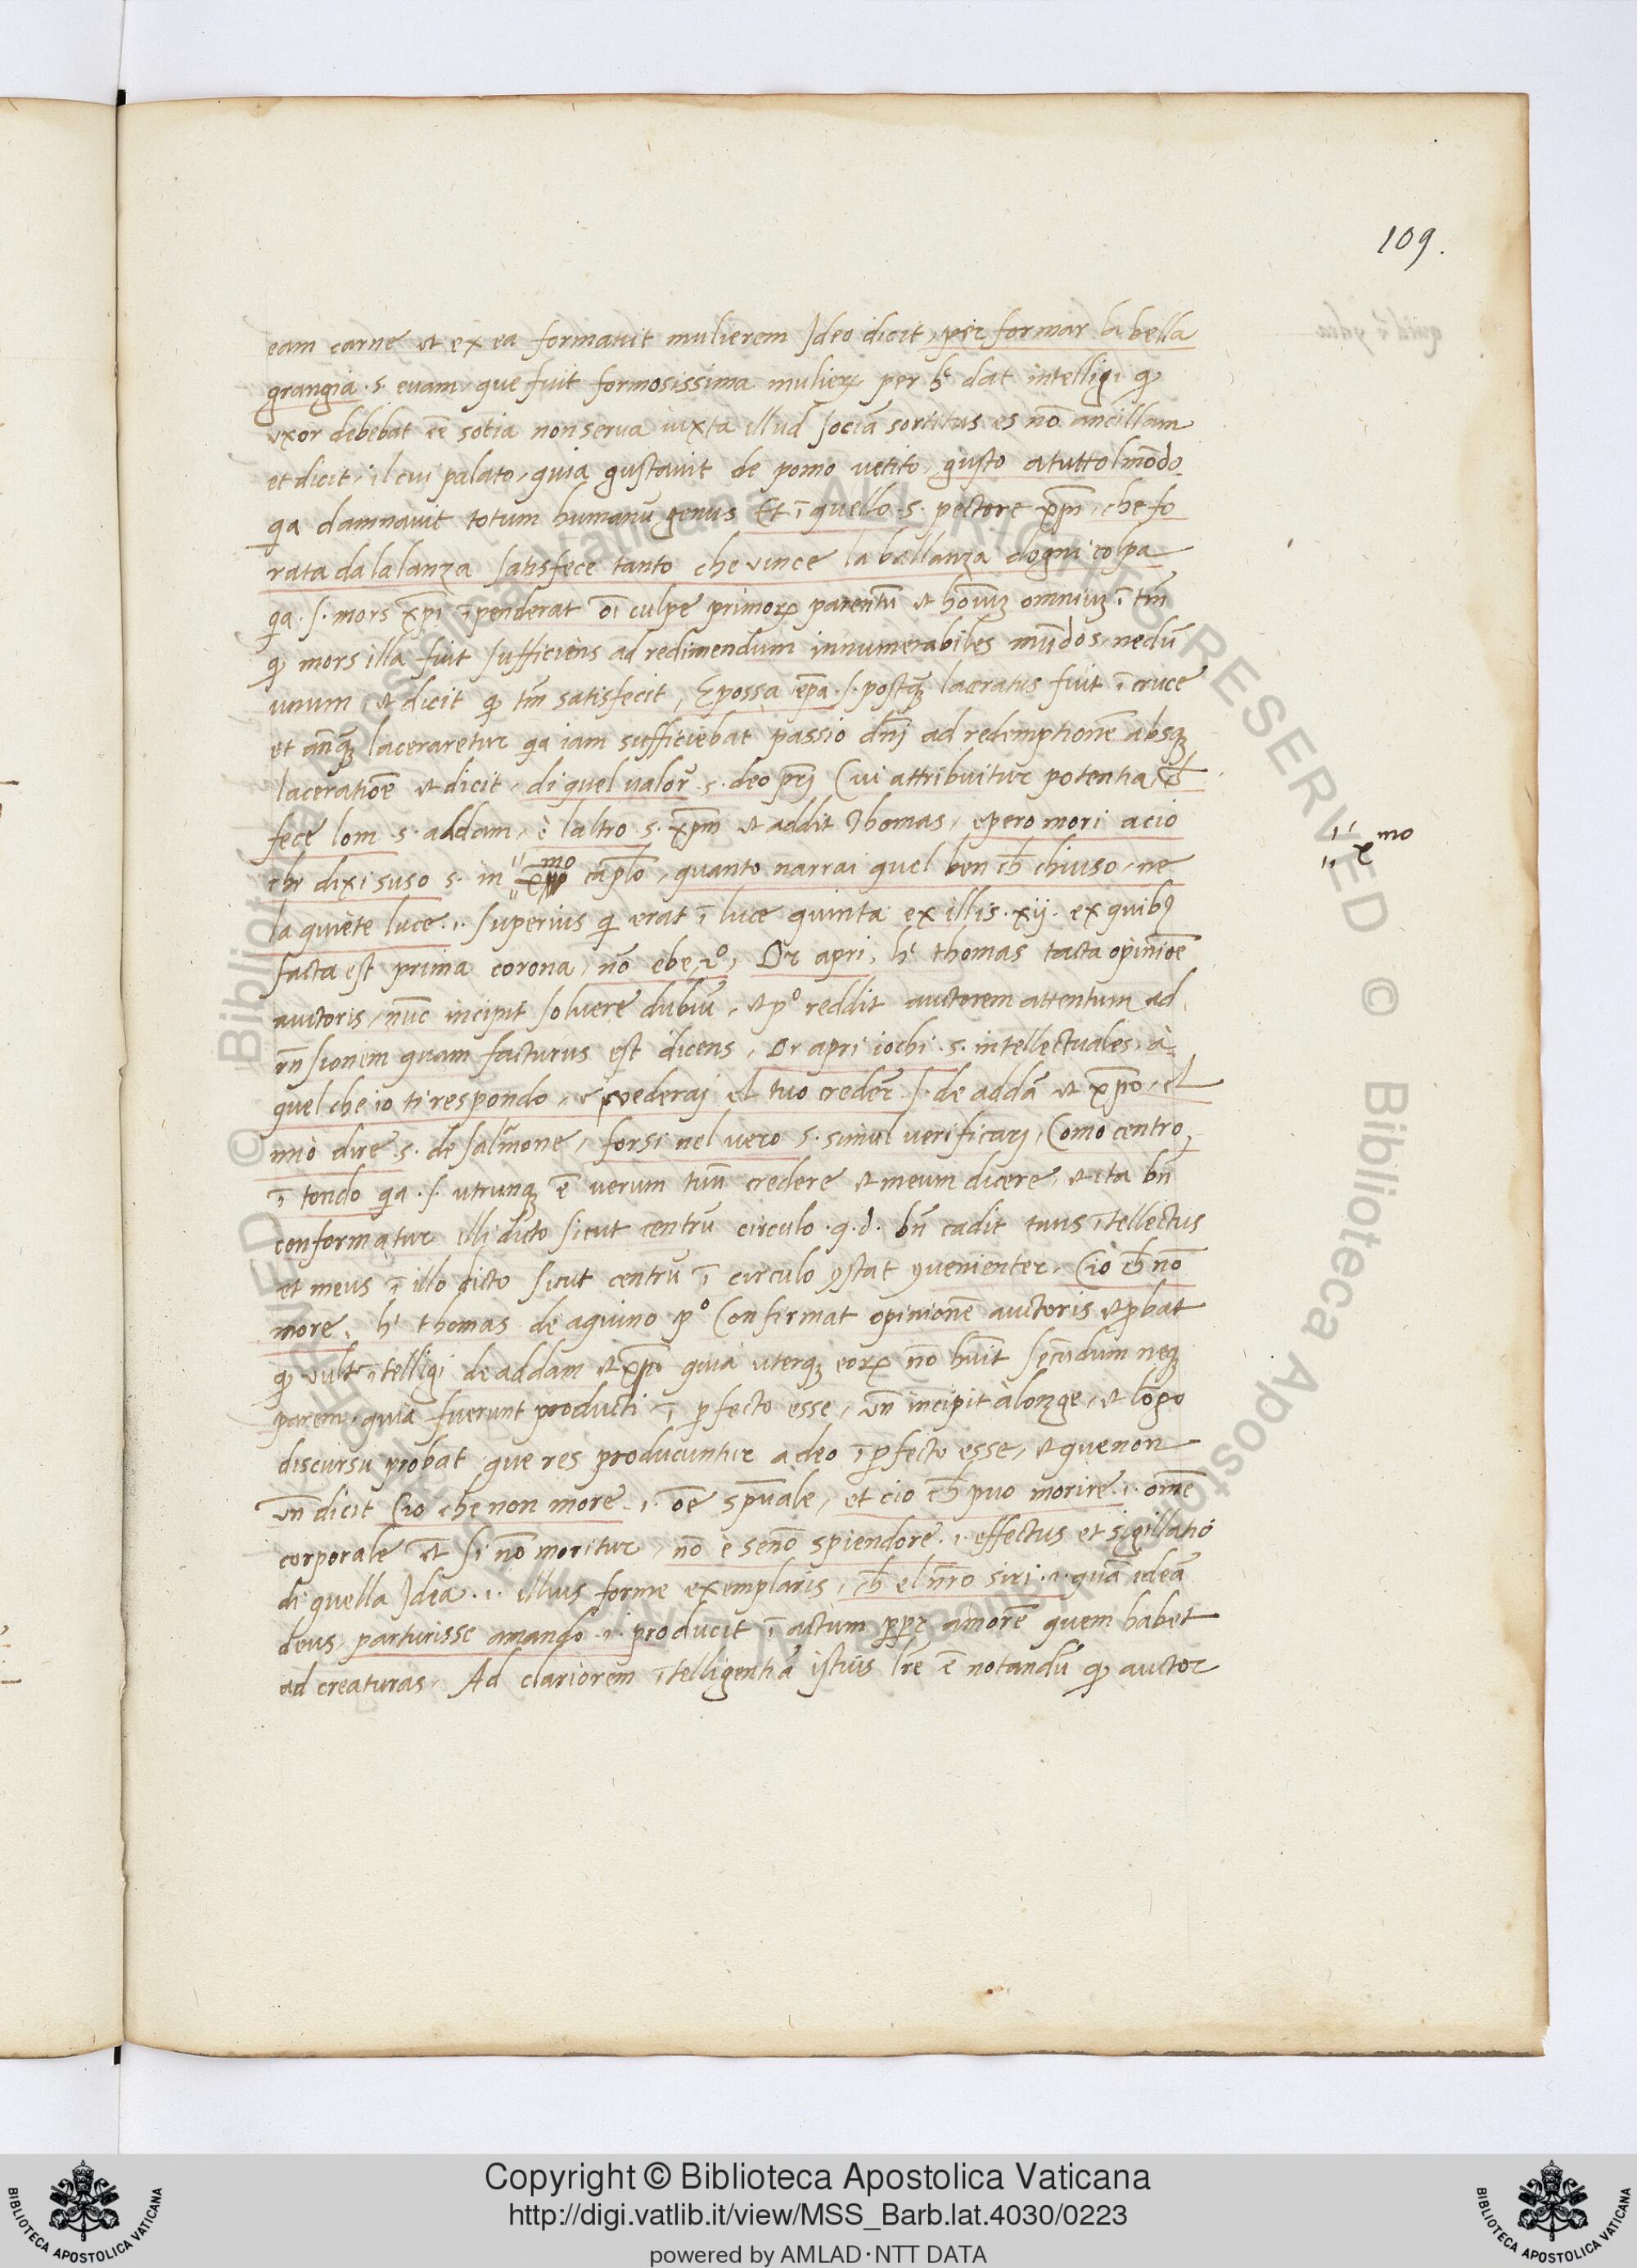 109.
eam carne et ex ea formavit mulierem Ideo dicit, per formar la bella
grangia .s. evam, que fuit formosissima mulieꝝ per h̄ dat intelligi ꝙ
uxor debebat eē sotia non serva iuxta illud sociā sortitus es nō ancillam
et dicit, il cui palato, quia gustavit de pomo vetito, gusto a tuttolmōdo
qa damnavit totum humanū genus Et ī quello .s. pectore xp̄ī, che fo
rata da la lanza satisfece tanto che vince la ballanza dogni colpa
qa .s. mors xp̄i īpenderat oī culpe primoꝝ parentū et hom̄iuꝫ omniuꝫ ī tm̄
ꝙ mors illa fuit sufficiens ad redimendum innumerabiles mūdos, nedū
unum, et dicit ꝙ tm̄ satisfecit, E possa epa .s. postqꝫ laceratus fuit ī cruce
et anqꝫ laceraretur qa iam sufficiebat passio dn̄i ad redemptionē absqꝫ
laceratiōe et dicit, di quel valor .s. deo pr̄i Cui attribuitur potentia, ch̄
fece lom .s. addam, è laltro .s. xp̄m et addit Thomas, epero mori acio
chr dixi suso .s. in " x mo cap̄lo, quanto narrai quel ben ch̄ chiuso, ne
" x mo
la quiete luce .i. superius qi erat ī luce quinta ex illis .xij. ex quibꝰ
facta est prima corona, nō ebe 2º, Or apri, h̄ thomas tacta opiniōe
auctoris, nūc incipit solvere dubiū, et pº reddit auctorem attentum ad
rn̄sionem quam facturus est dicens, Or apri iochi .s. intellectuales, à
quel che io ti respondo, e vederaj el tuo creder .s. de addā et xp̄o, el
mio dire .s. de salamone, forsi nel vero .s. simul verificarj, Como centro
ī tondo qa .s. utrunqꝫ ē verum tuū credere et meum dicere, et ita bn̄
conformatur illi dicto sicut centrū circulo .q.d. bn̄ cadit tuus ītellectus
et meus ī illo dicto sicut centrū ī circulo ꝯstat ꝯvenienter, Cio ch̄ nō
more, h̄ thomas de aquino pº Confirmat opinionē auctoris et ꝓbat
ꝙ vult ītelligi de addam et xp̄o quia uterqꝫ eoꝝ nō huit secundum neqꝫ
parem, quia fuerunt producti ī ꝑfecto esse, un̄ incipit a lonzge, et lōgo
discursu probat que res producuntur a deo ī ꝑfecto esse, et que non
un̄ dicit Cio che non more .i. oē spūale, et cio ch̄ puo morire .i. omē
corporale et si nō moritur, nō è senō splendore .i. effectus et sigillatiō
di quella Idea .i. illius forme exemplaris, ch̄ el nr̄o siri .i. quā ideā
deus, parturisse amando .i. producit ī actum ꝓpr amorē quem habet
ad creaturas. Ad clariorem ītelligentiā istius lr̄e ē notandū ꝙ auctor
© Biblioteca Apostolica Vaticana ALL RIGHTS RESERVED
Copyright © Biblioteca Apostolica Vaticana
http://digi.vatlib.it/view/MSS_Barb.lat.4030/0223
powered by AMLAD·NTT DATA
BIBLIOTECA APOSTOLICA VATICANA
BIBLIOTECA APOSTOLICA VATICANA